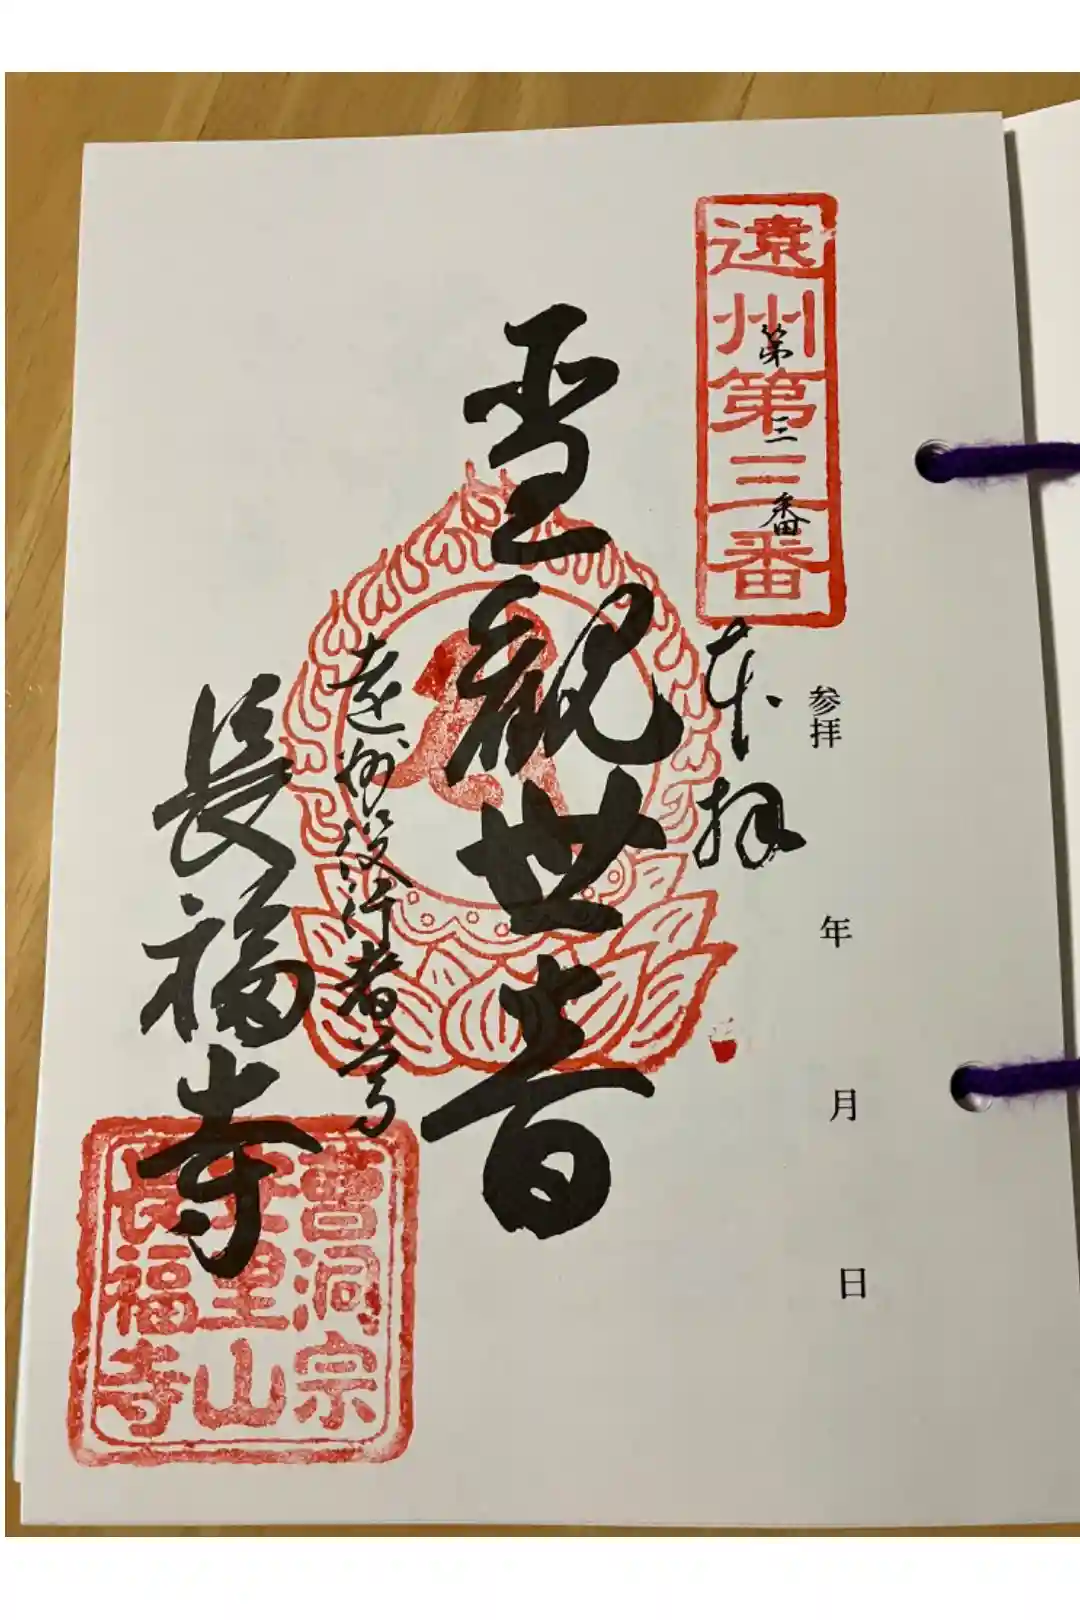 参拝 年 月 日
遠州第三番
第三番
奉拝
聖観世音
遠州役行者尊
長福寺
曹洞宗
安里山
長福寺